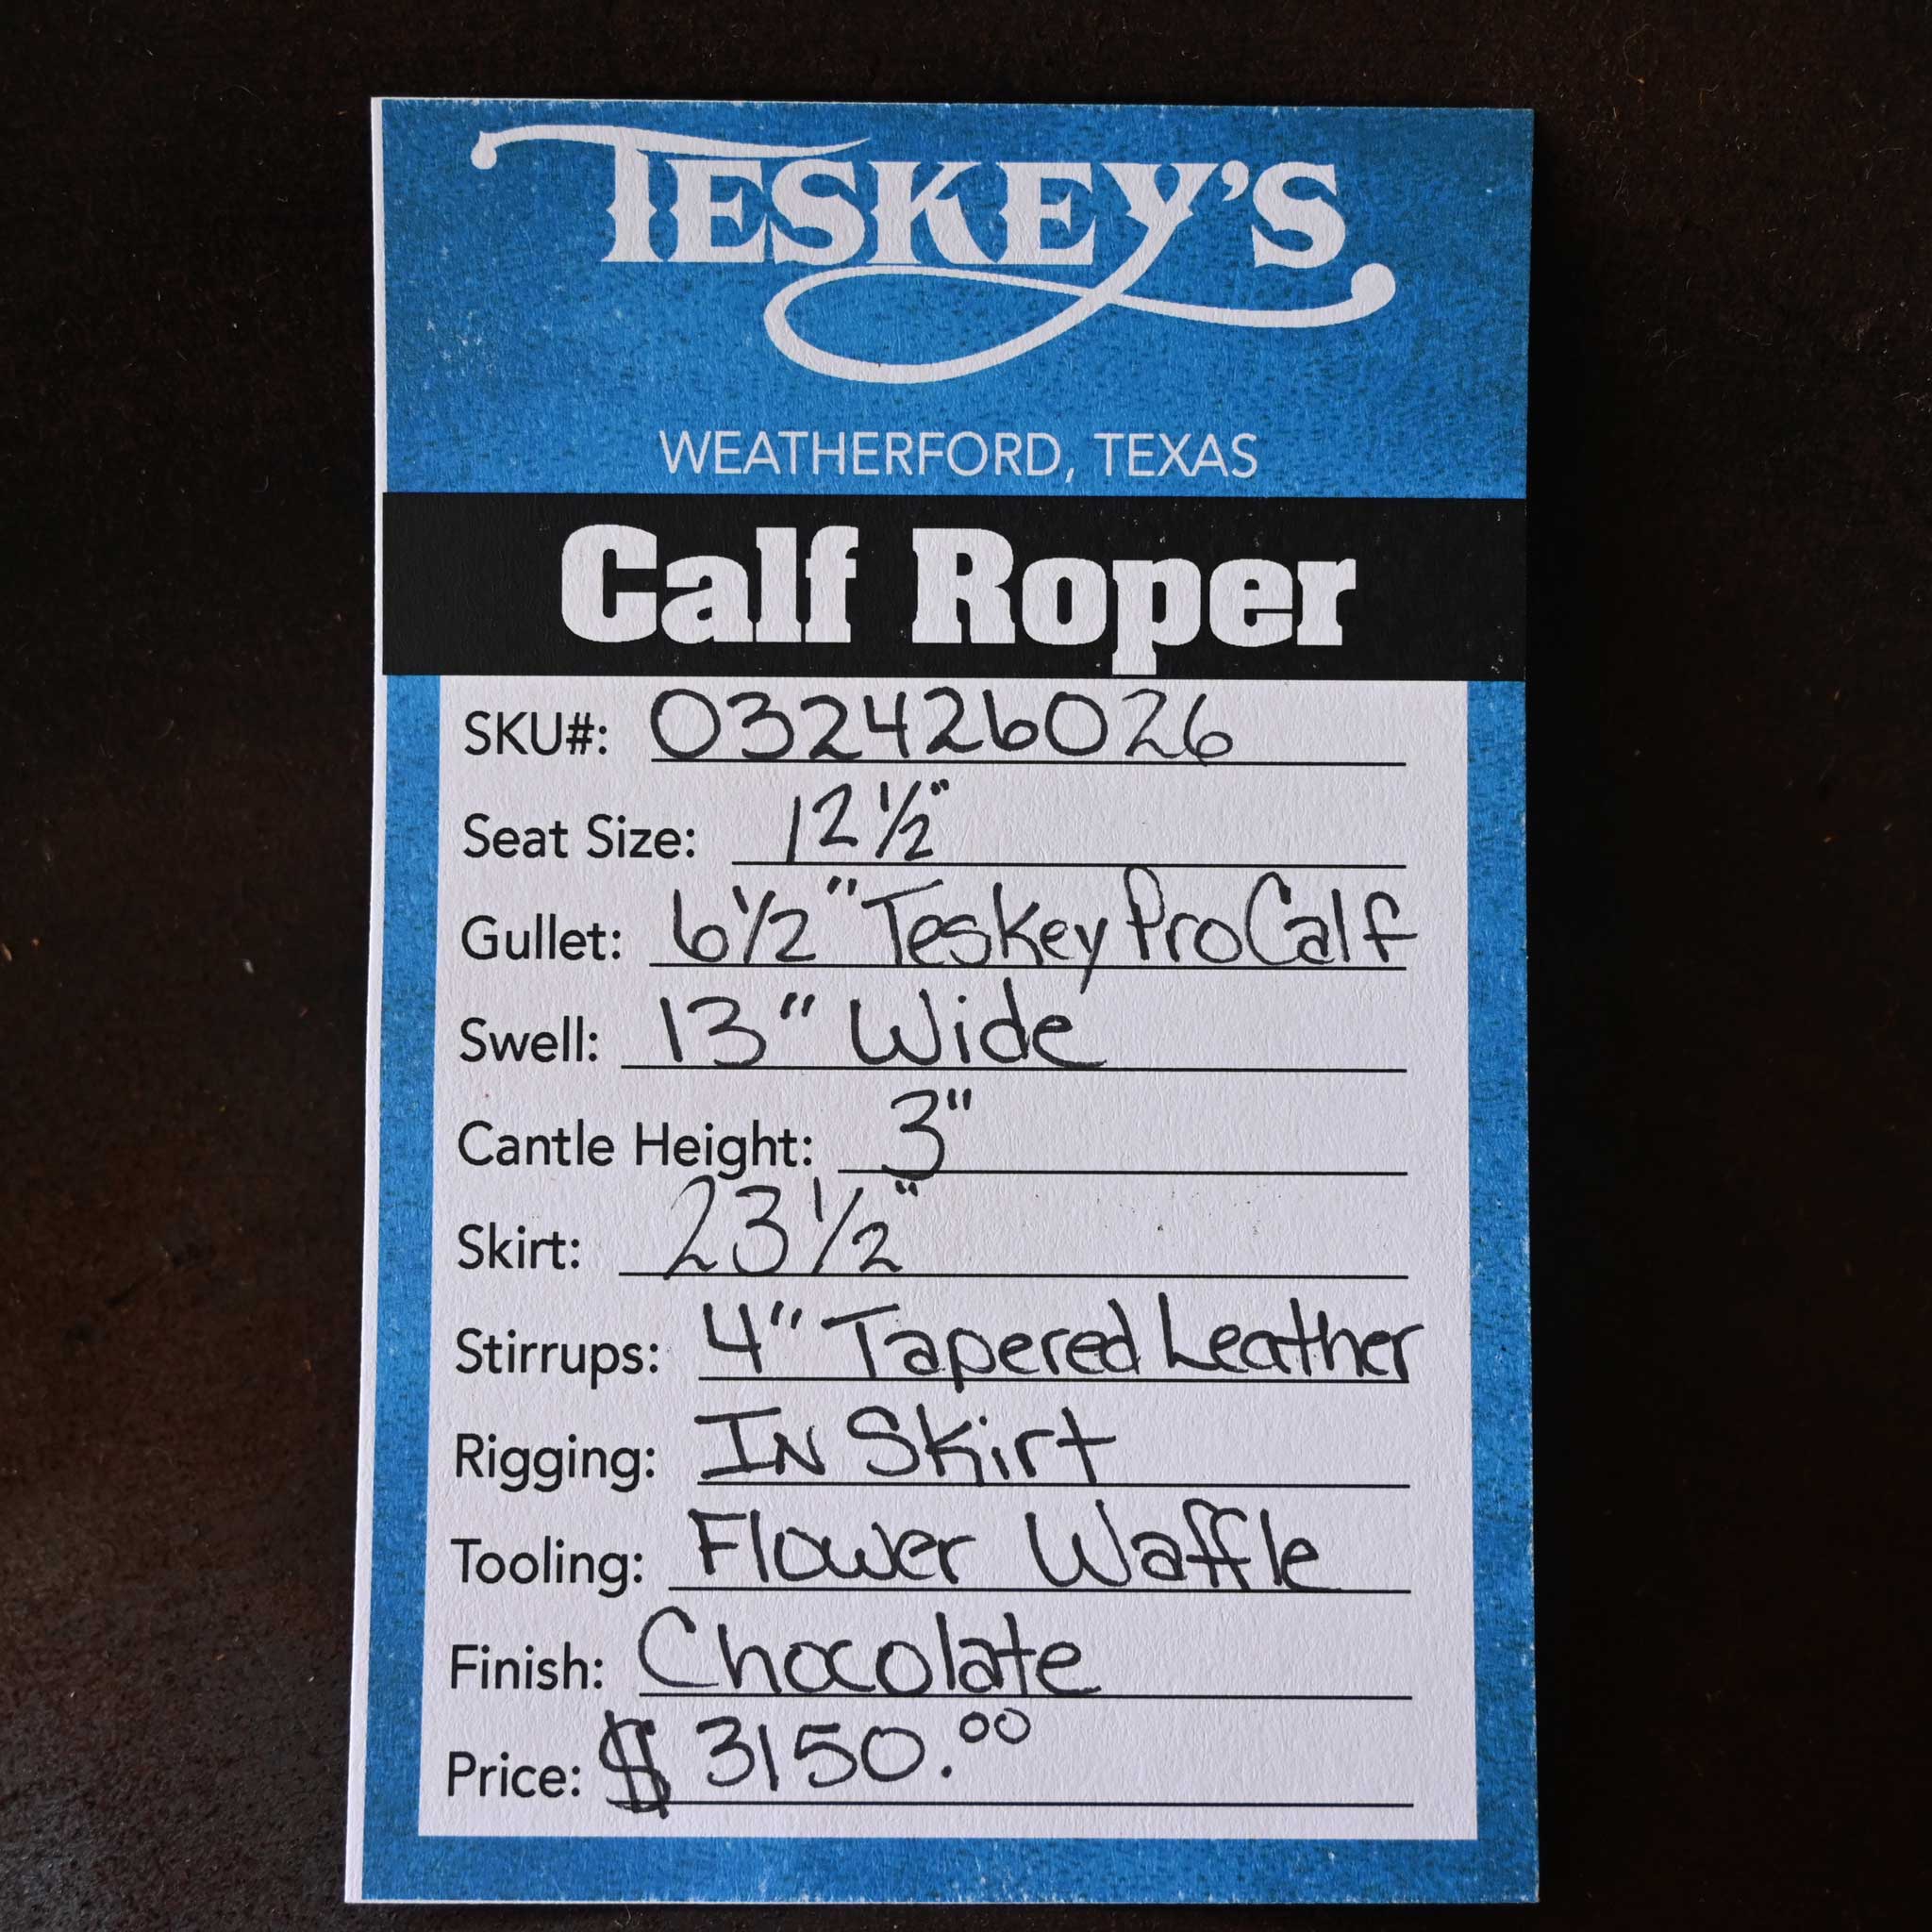 TESKEY'S
WEATHERFORD, TEXAS
Calf Roper
SKU#: 032426026
Seat Size: 12 1/2"
Gullet: 6 1/2" Teskey Pro Calf
Swell: 13" Wide
Cantle Height: 3"
Skirt: 23 1/2"
Stirrups: 4" Tapered Leather
Rigging: IN Skirt
Tooling: Flower Waffle
Finish: Chocolate
Price: $ 3150.00